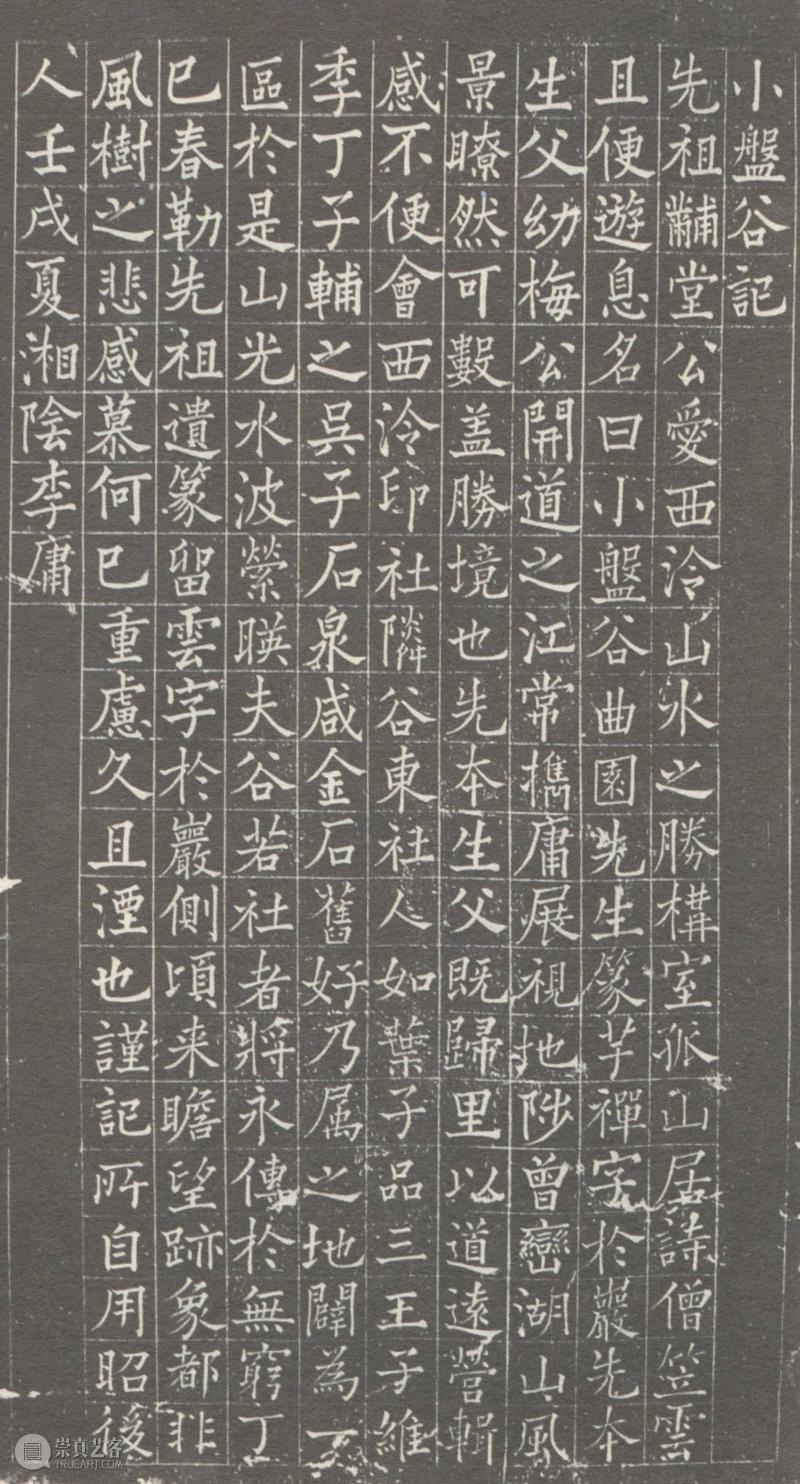 小盤谷記
先祖黼堂公愛西泠山水之勝構室孤山居詩僧笠雲
且便遊息名曰小盤谷曲園先生篆芋禪字於巖先本
生父幼梅公開道之江常攜庸展視地陟曾巒湖山風
景瞭然可數盖勝境也先本生父既歸里以道遠營輯
感不便會西泠印社隣谷東社人如葉子品三王子維
季丁子輔之吳子石泉咸金石舊好乃属之地闢為一
區於是山光水波縈暎夫谷若社者將永傳於無窮丁
巳春勒先祖遺篆留雲字於巖側頃来瞻望跡象都非
風樹之悲感慕何已重慮久且湮也謹記所自用昭後
人壬戌夏湘陰李庸
崇真艺客
TRUEART.COM